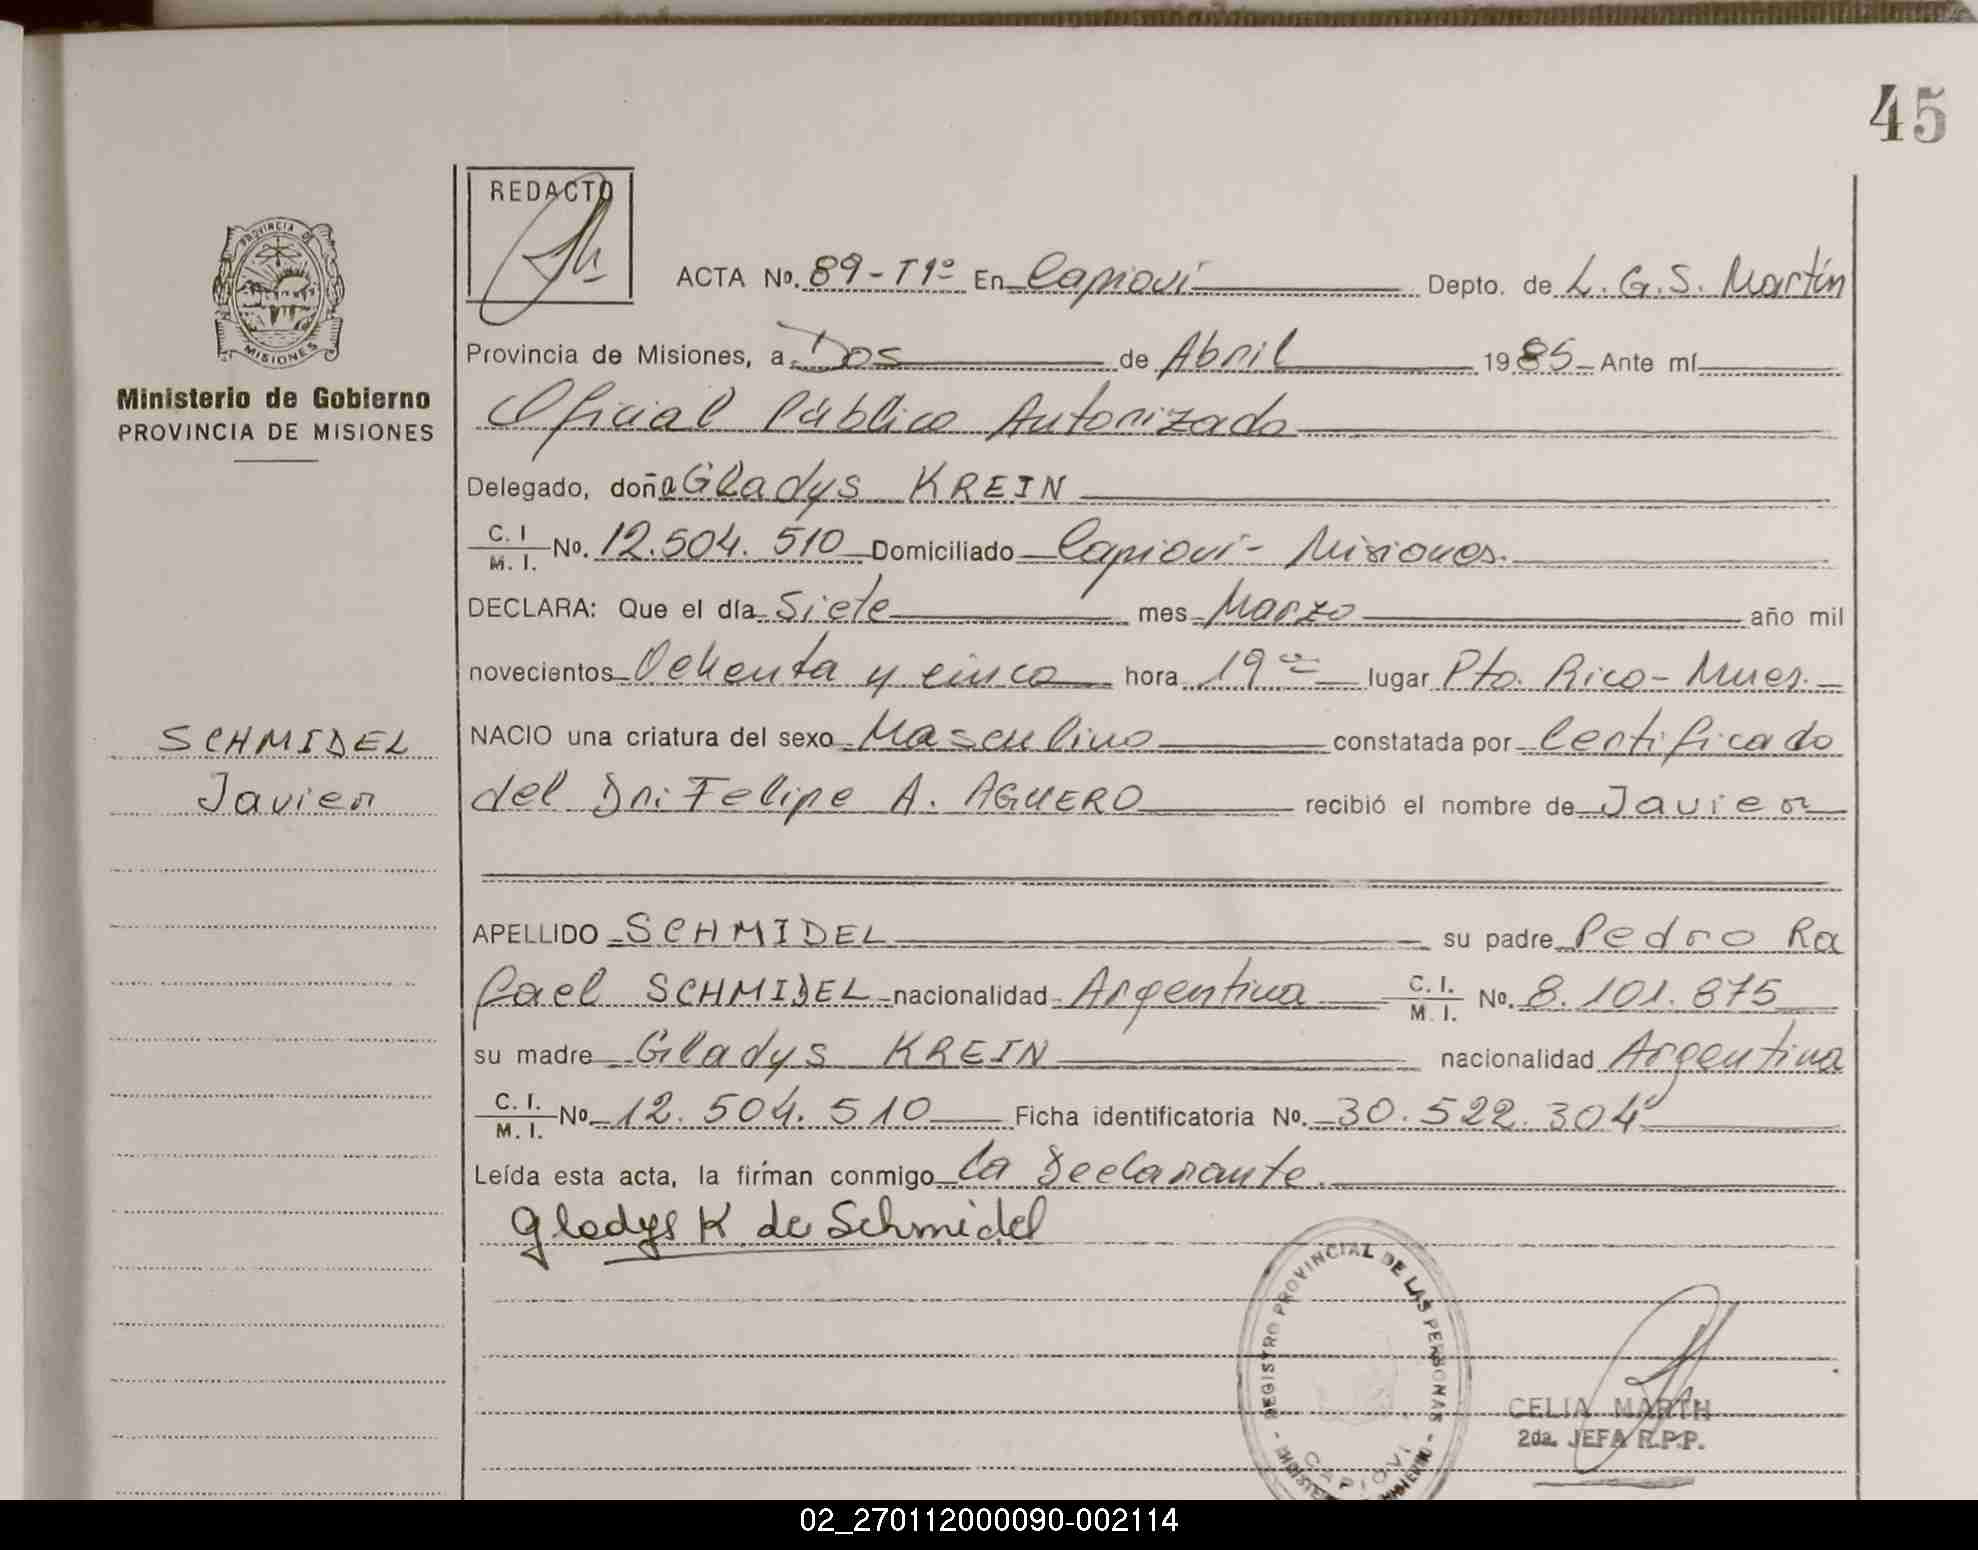 45
REDACTO
PROVINCIA DE
MISIONES
Ministerio de Gobierno
PROVINCIA DE MISIONES
SCHMIDEL
Javier
ACTA No. 89-T1º En Capioví Depto. de L. G. S. Martín
Provincia de Misiones, a Dos de Abril 1985 Ante mí
Oficial Público Autorizado
Delegado, doña Gladys KREIN
C. I. / M. I. No. 12.504.510 Domiciliado Capioví - Misiones.
DECLARA: Que el día Siete mes Marzo año mil
novecientos Ochenta y cinco hora 19 lugar Pto. Rico - Mnes.
NACIO una criatura del sexo Masculino constatada por Certificado
del Dr: Felipe A. AGUERO recibió el nombre de Javier
APELLIDO SCHMIDEL su padre Pedro Ra
fael SCHMIDEL nacionalidad Argentina C. I. / M. I. No. 8.101.875
su madre Gladys KREIN nacionalidad Argentina
C. I. / M. I. No. 12.504.510 Ficha identificatoria No. 30.522.304
Leída esta acta, la firman conmigo la Declarante.
Gladys K. de Schmidel
REGISTRO PROVINCIAL DE LAS PERSONAS
CAPIOVI
CELIA MARTH
2da. JEFA R.P.P.
02_270112000090-002114